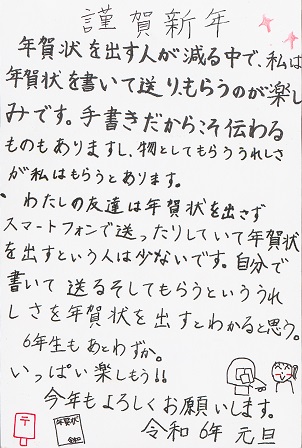 謹賀新年
年賀状を出す人が減る中で、私は
年賀状を書いて送りもらうのが楽し
みです。手書きだからこそ伝わる
ものもありますし、物としてもらううれしさ
が私はもらうとあります。
わたしの友達は年賀状を出さず
スマートフォンで送ったりしていて年賀状
を出すという人は少ないです。自分で
書いて送るそしてもらうといううれ
しさを年賀状を出すとわかると思う。
6年生もあとわずか。
いっぱい楽しもう!!
今年もよろしくお願いします。
令和6年元旦
〒
年賀状